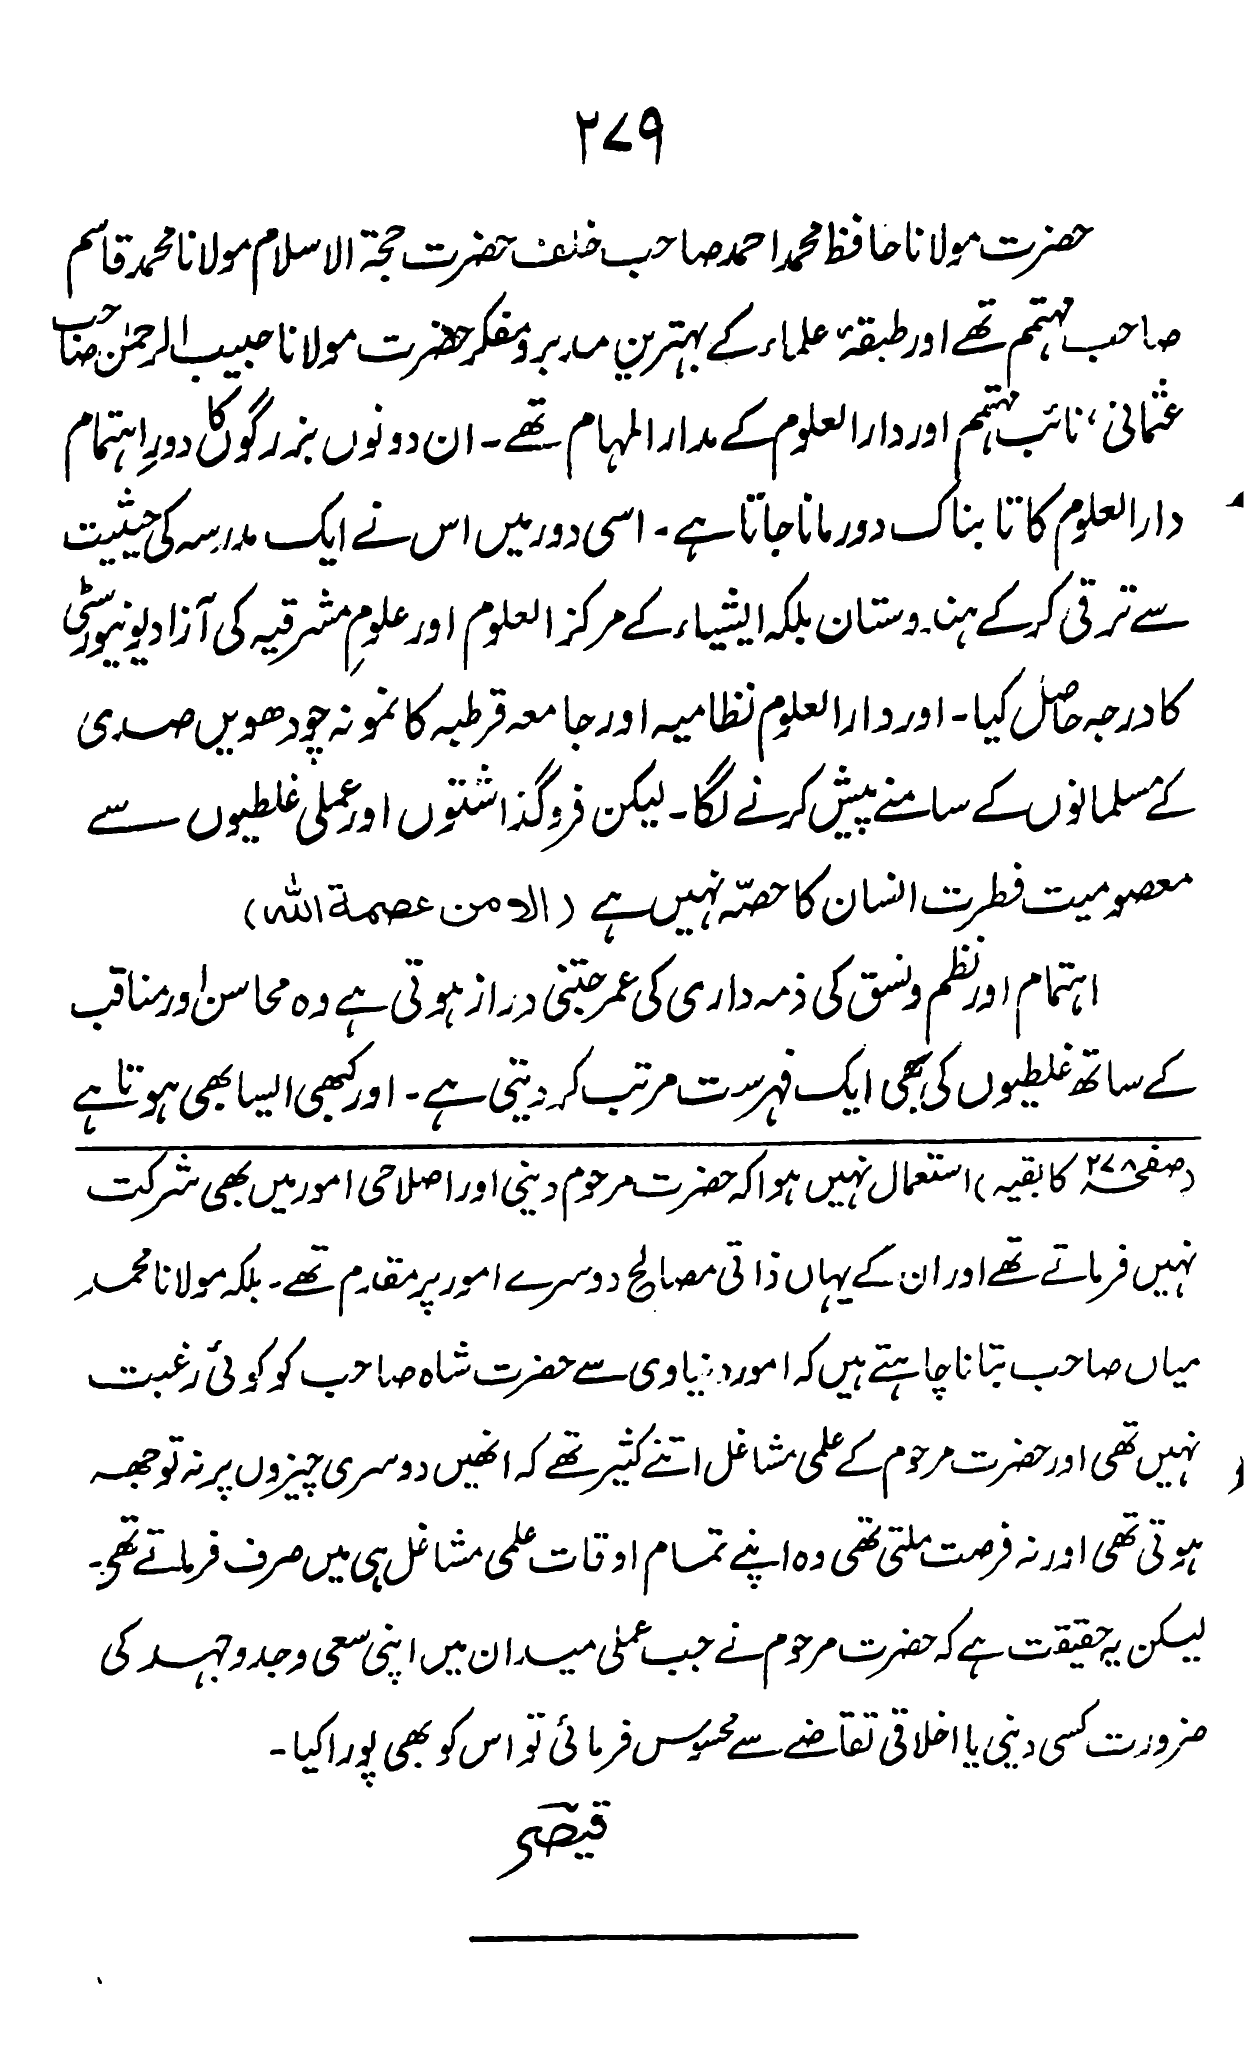 ۲۷۹
حضرت مولانا حافظ محمد احمد صاحب خلف حضرت حجۃ الاسلام مولانا محمد قاسم
صاحب مہتمم تھے اور طبقۂ علماء کے بہترین مدبر و مفکر حضرت مولانا حبیب الرحمٰن صاحب
عثمانی، نائب مہتمم اور دارالعلوم کے مدار المہام تھے۔ ان دونوں بزرگوں کا دورِ اہتمام
دارالعلوم کا تابناک دور مانا جاتا ہے۔ اسی دور میں اس نے ایک مدرسہ کی حیثیت
سے ترقی کر کے ہندوستان بلکہ ایشیاء کے مرکز العلوم اور علومِ مشرقیہ کی آزاد یونیورسٹی
کا درجہ حاصل کیا۔ اور دارالعلوم نظامیہ اور جامعہ قرطبہ کا نمونہ چودھویں صدی
کے مسلمانوں کے سامنے پیش کرنے لگا۔ لیکن فروگذاشتوں اور عملی غلطیوں سے
معصومیت فطرت انسان کا حصّہ نہیں ہے (الا من عصمۃ اللہ)
اہتمام اور نظم و نسق کی ذمہ داری کی عمر جتنی دراز ہوتی ہے وہ محاسن اور مناقب
کے ساتھ غلطیوں کی بھی ایک فہرست مرتب کر دیتی ہے۔ اور کبھی ایسا بھی ہوتا ہے
(صفحہ ۲۷۸ کا بقیہ) استعمال نہیں ہوا کہ حضرت مرحوم دینی اور اصلاحی امور میں بھی شرکت
نہیں فرماتے تھے اور ان کے یہاں ذاتی مصالح دوسرے امور پر مقدم تھے۔ بلکہ مولانا محمد
میاں صاحب بتانا چاہتے ہیں کہ امور دنیاوی سے حضرت شاہ صاحب کو کوئی رغبت
نہیں تھی اور حضرت مرحوم کے علمی مشاغل اتنے کثیر تھے کہ انھیں دوسری چیزوں پر نہ توجھہ
ہوتی تھی اور نہ فرصت ملتی تھی وہ اپنے تمام اوقات علمی مشاغل ہی میں صرف فرماتے تھے۔
لیکن یہ حقیقت ہے کہ حضرت مرحوم نے جب عملی میدان میں اپنی سعی و جدوجہد کی
ضرورت کسی دینی یا اخلاقی تقاضے سے محسوس فرمائی تو اس کو بھی پورا کیا۔
قیصر